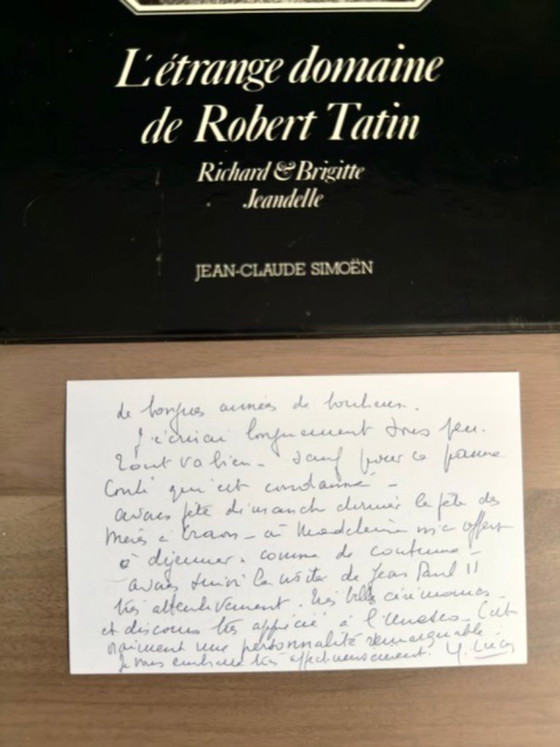 L'étrange domaine
de Robert Tatin
Richard & Brigitte
Jeandelle
JEAN-CLAUDE SIMOËN
de longues années de bonheur.
J'écrirai longuement sous peu.
Tout va bien - sauf pour ce pauvre
qui est condamné -
avons fêté dimanche dernier la fête des
Mères à Craon - à Madeleine m'a offert
à déjeuner. comme de coutume -
avons suivi la visite de Jean Paul II
très attentivement. très belles cérémonies -
et discours très apprécié à l'Unesco - C'est
vraiment une personnalité remarquable -
Je vous embrasse très affectueusement.